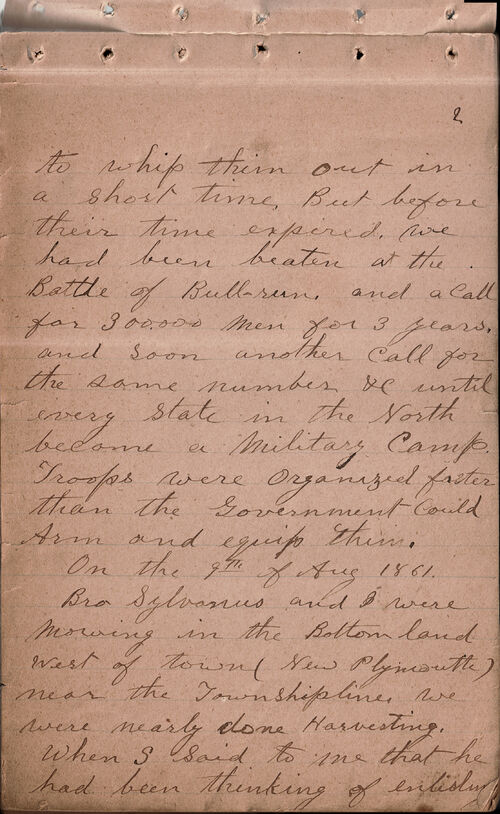 2
to whip them out in
a short time, But before
their time expired, we
had been beaten at the
Battle of Bull-run, and a Call
for 300.000 Men for 3 years,
and Soon another Call for
the same number &c until
every State in the North
become a Military Camp.
Troops were Organized faster
than the Government Could
Arm and equip them.
On the 9th of Aug 1861.
Bro Sylvanus and I were
Mowing in the Bottom land
West of town (New Plymouth)
near the Township line, we
were nearly done Harvesting.
When S Said to me that he
had been thinking of enlisting